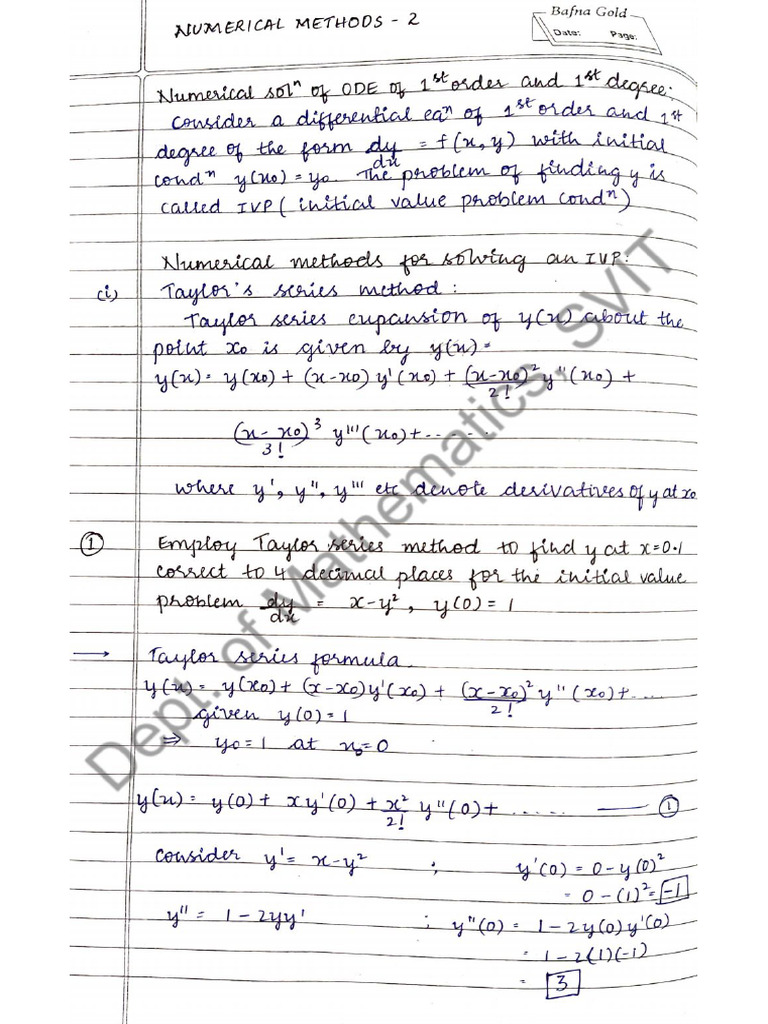 Bafna Gold
Date: Page:
NUMERICAL METHODS - 2
Numerical solⁿ of ODE of 1st order and 1st degree:
Consider a differential eqⁿ of 1st order and 1st
degree of the form dy/dx = f(x, y) with initial
condⁿ y(x₀) = y₀. The problem of finding y is
called IVP (initial value problem condⁿ)
Numerical methods for solving an IVP:
(i) Taylor's series method:
Taylor series expansion of y(x) about the
point x₀ is given by y(x) =
y(x) = y(x₀) + (x-x₀) y'(x₀) + (x-x₀)²/2! y''(x₀) +
(x-x₀)³/3! y'''(x₀) + ......
where y', y'', y''' etc denote derivatives of y at x₀
① Employ Taylor series method to find y at x=0.1
correct to 4 decimal places for the initial value
problem dy/dx = x-y², y(0) = 1
→ Taylor series formula.
y(x) = y(x₀) + (x-x₀)y'(x₀) + (x-x₀)²/2! y''(x₀) + .....
given y(0) = 1
⇒ y₀ = 1 at x₀=0
y(x) = y(0) + xy'(0) + x²/2! y''(0) + ...... — ①
Consider y' = x-y² ; y'(0) = 0-y(0)²
= 0-(1)² = -1
y'' = 1-2yy' ; y''(0) = 1-2y(0)y'(0)
= 1-2(1)(-1)
= 3
Dept. of Mathematics, SVIT